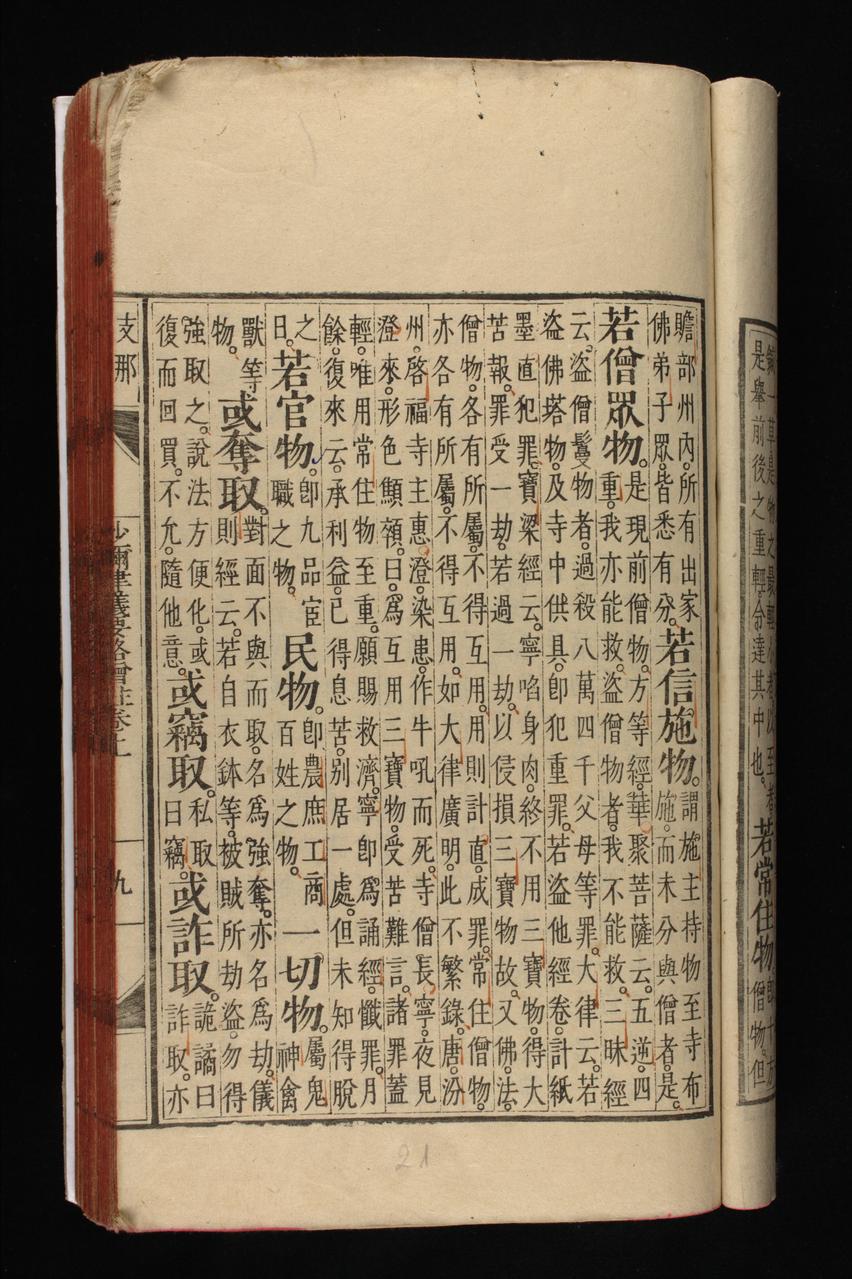 鍼一草是物之最輕
是舉前後之重輕。令達其中也。若常住物即十方
僧物。但
贍部州內。所有出家
佛弟子眾。皆悉有分。若信施物。謂施主持物至寺布
施。而未分與僧者。是。
若僧眾物。是現前僧物。方等經。華聚菩薩云。五逆。四
重。我亦能救。盜僧物者。我不能救。三昧經
云。盜僧鬘物者。過殺八萬四千父母等罪。大律云。若
盜佛塔物。及寺中供具。即犯重罪。若盜他經卷。計紙
墨直犯罪。寶梁經云。寧啗身肉。終不用三寶物。得大
苦報。罪受一劫。若過一劫。以侵損三寶物故。又佛。法。
僧物。各有所屬。不得互用。用則計直。成罪。常住僧物。
亦各有所屬。不得互用。如大律廣明。此不繁錄。唐。汾
州。啓福寺主惠澄。染患。作牛吼而死。寺僧長。寧。夜見
澄來。形色顦顇。曰。爲互用三寶物。受苦難言。諸罪蓋
輕。唯用常住物至重。願賜救濟。寧即爲誦經。懺罪。月
餘。復來云。承利益。已得息苦。別居一處。但未知得脫
之
日。若官物。即九品宦
職之物。民物。即農庶工商
百姓之物。一切物。屬鬼
神禽
獸等
物。或奪取。對面不與而取。名爲強奪。亦名爲劫。儀
則經云。若自衣鉢等。被賊所劫盜。勿得
強取之。說法方便化。或
復而回買。不允。隨他意。或竊取。私取
曰竊。或詐取。詭譎曰
詐取。亦
支那
沙彌律儀要略增註卷上
九
21